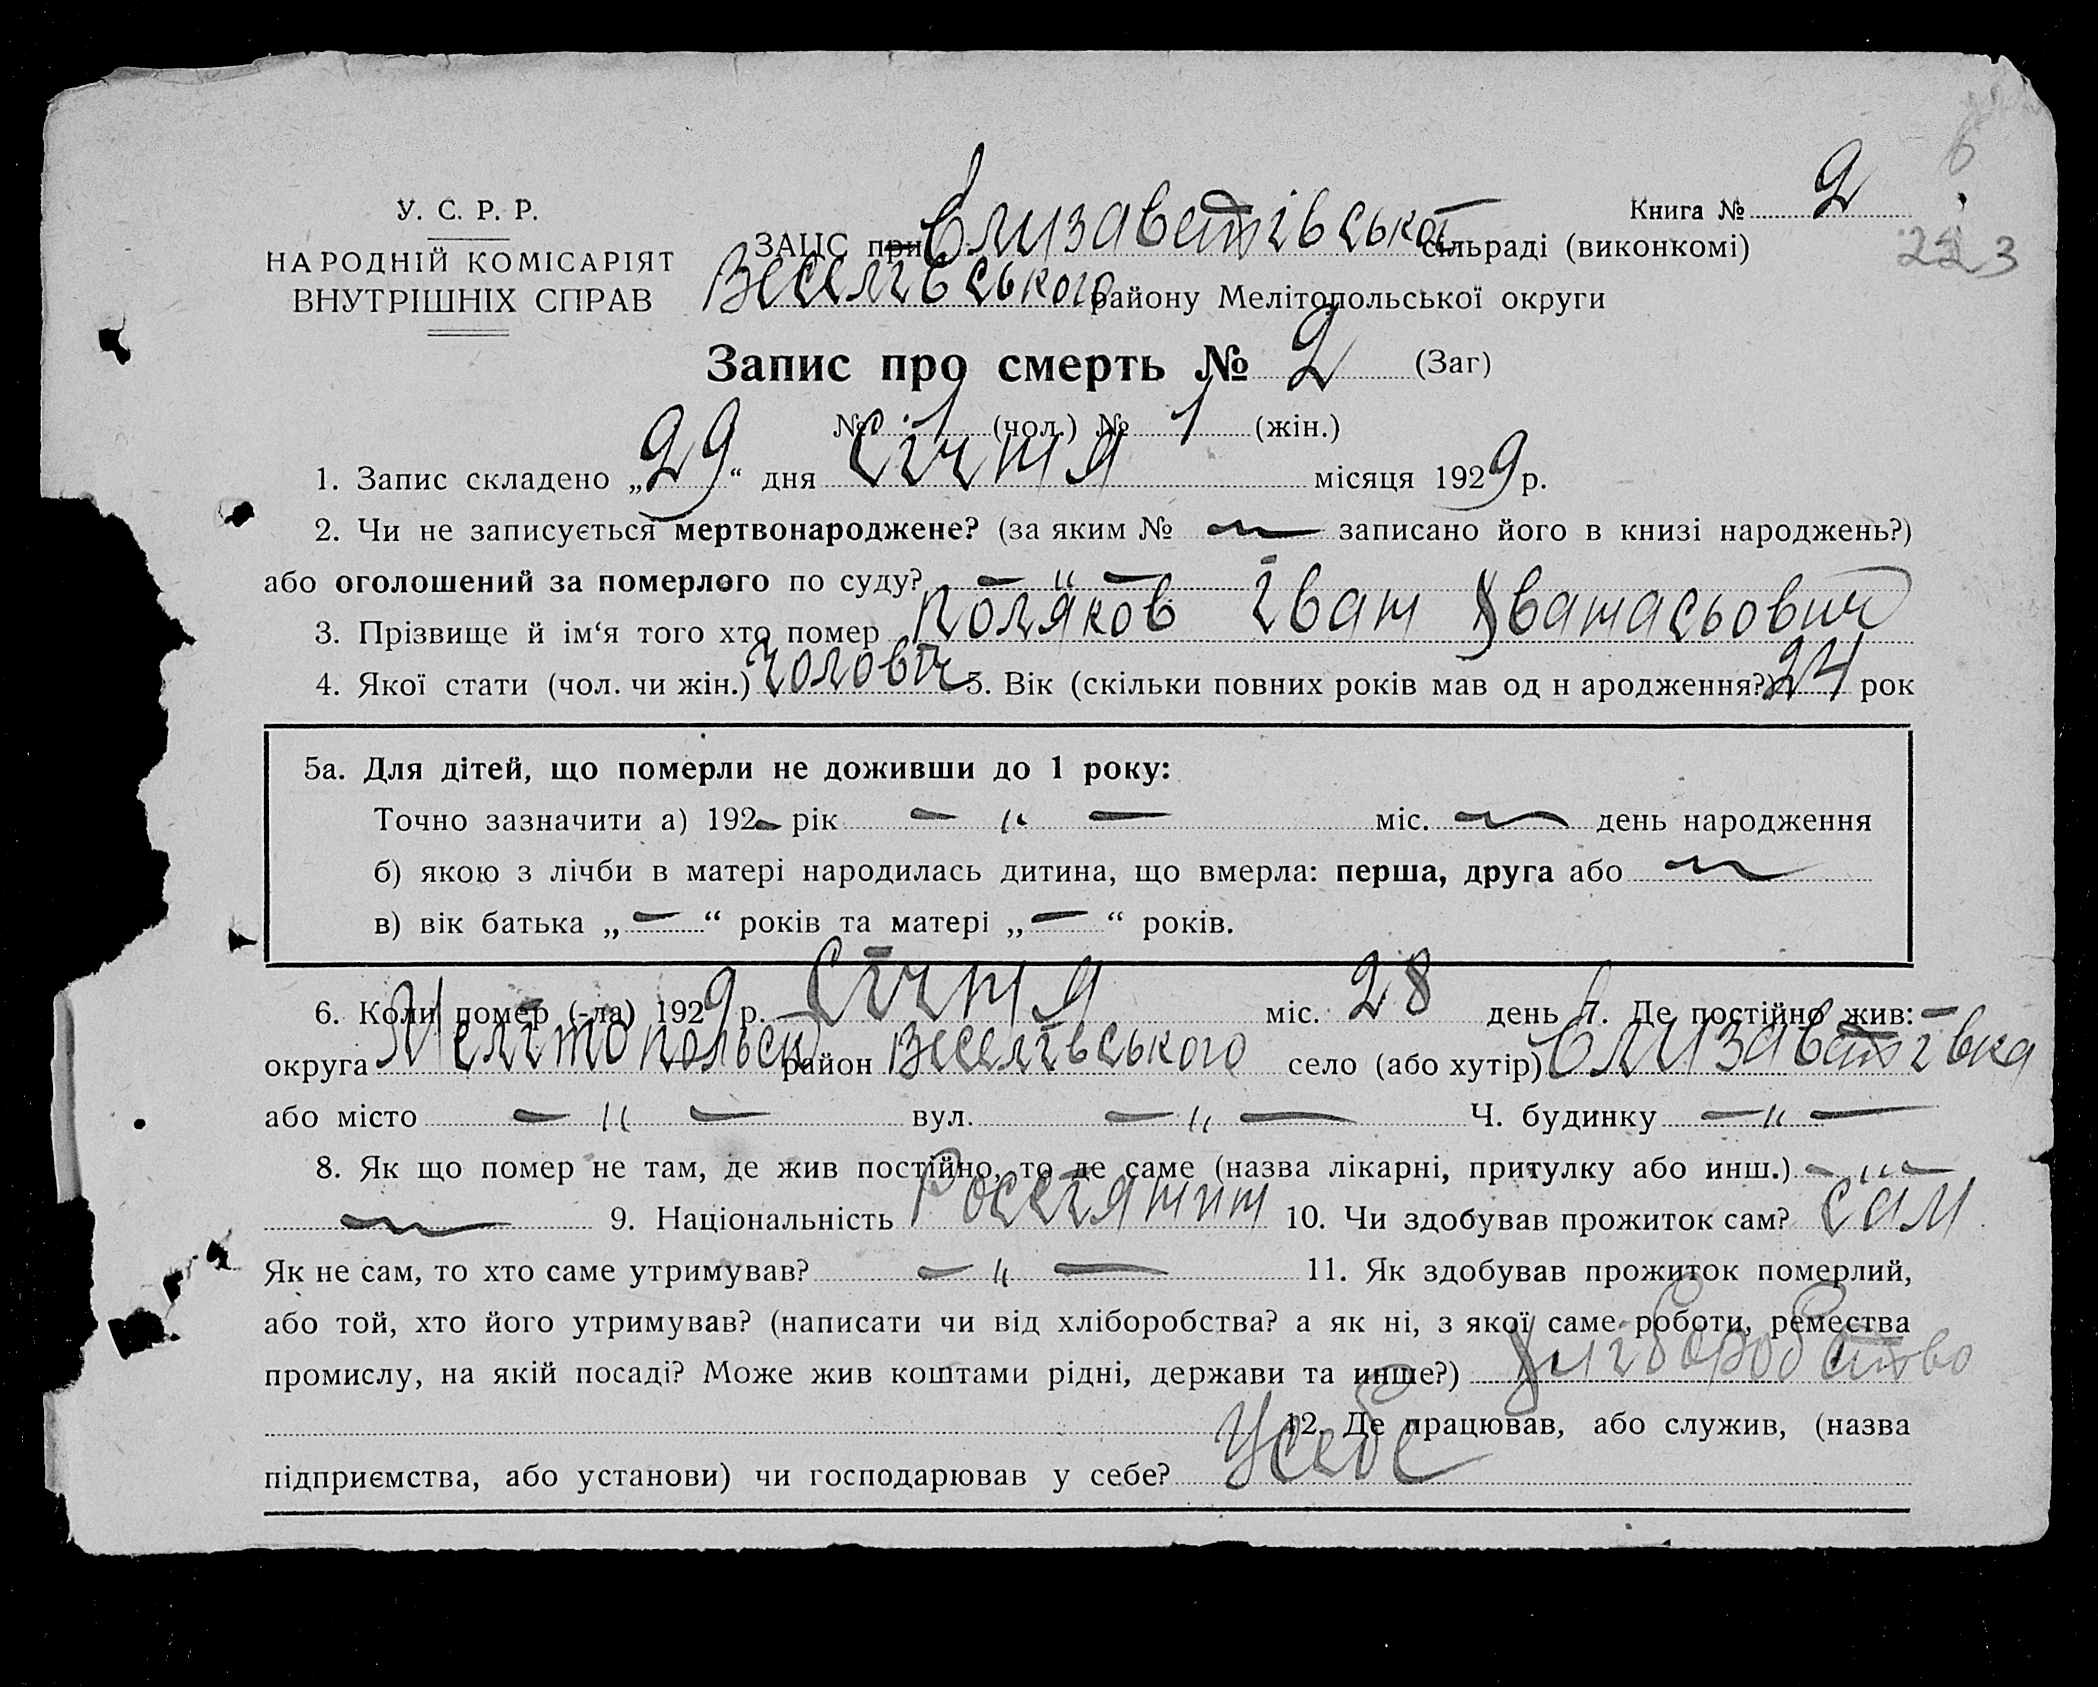 У. С. Р. Р.
НАРОДНІЙ КОМІСАРІЯТ
ВНУТРІШНІХ СПРАВ
Книга № 2
223
ЗАЦС при Єлизаветівської сільраді (виконкомі)
Веселівського району Мелітопольської округи
Запис про смерть № 2 (Заг)
№ 1 (чол.) № 1 (жін.)
1. Запис складено „29“ дня Січня місяця 1929 р.
2. Чи не записується мертвонароджене? (за яким № — записано його в книзі народжень?)
або оголошений за померлого по суду? — „ —
3. Прізвище й ім‘я того хто помер Поляков Іван
4. Якої стати (чол. чи жін.) Чоловіч 5. Вік (скільки повних років мав од н ародження?) 24 рок
5а. Для дітей, що померли не доживши до 1 року:
Точно зазначити а) 192- рік — „ — міс. — день народження
б) якою з лічби в матері народилась дитина, що вмерла: перша, друга або —
в) вік батька „—“ років та матері „—“ років.
6. Коли помер (-ла) 1929 р. Січня міс. 28 день 7. Де постійно жив:
округа Мелітопольськ район Веселівського село (або хутір) Єлизаветівка
або місто — „ — вул. — „ — Ч. будинку — „ —
8. Як що помер не там, де жив постійно, то де саме (назва лікарні, притулку або инш.) — „ —
— 9. Національність Россіянин 10. Чи здобував прожиток сам? сам
Як не сам, то хто саме утримував? — „ — 11. Як здобував прожиток померлий,
або той, хто його утримував? (написати чи від хліборобства? а як ні, з якої саме роботи, ремества
промислу, на якій посаді? Може жив коштами рідні, держави та инше?) Хліборобство
12. Де працював, або служив, (назва
підприємства, або установи) чи господарював у себе? Усебе